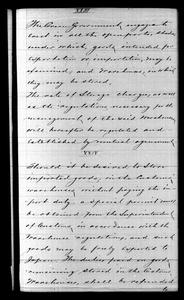 XXIII
The Corean Government engage to
erect in all the open ports, sheds,
under which goods intended for
exportation or importation, may be
examined, and Warehouses, in which
they may be stored.
The rate of Storage charges, as well
as the regulations necessary for the
management of the said Warehouses
will hereafter be regulated and
established by mutual agreement.
XXIV
Should it be desired to store
imported goods, in the Customs
warehouses without paying the im-
port duty a special permit must
be obtained from the Superintendent
of Customs in accordance with the
Warehouse regulations, and such
goods may be freely exported to
Japan. The duties paid on goods
remaining stored in the Customs
Warehouses, shall be refunded